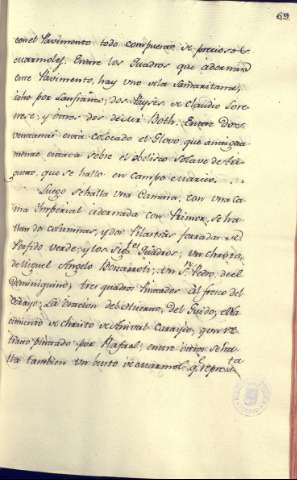 69
con el Pavimento todo compuesto de preciosos
marmoles. Entre los Quadros que adornan
este Pavimento, hay uno de la Samaritana,
hecho por Lanfranco; dos Payses de Claudio Lore-
nese; y otros dos de Juan Both. Entre Dos
ventanas está colocado el Globo, que antigua-
mente estaba sobre el obelisco solar de Au-
gusto, que se halló en campo Marzio.
Luego se halla una Camara, con una Ca-
ma Imperial adornada con Primor, se ha-
llan dos columnas, y dos Pilastras forradas de
Porfido verde; y los Sig.tes Quadros; Un Christo,
de Miguel Angelo Bonarroti; Un S.n Pedro, de el
Dominiquino; tres quadros Pintados Al fresco del
; La Oracion del Huerto, del Guido; el Na-
cimiento de Christo de Anival Caracho; y un re-
trato pintado por Rafael; entre otros se ha-
lla tambien un busto de marmol, q.e representa